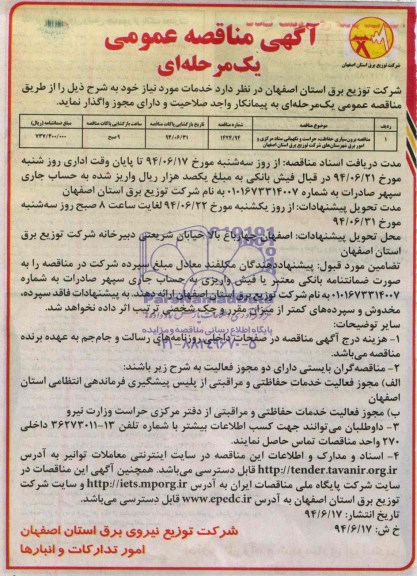 آگهی مناقصه عمومی
یک‌مرحله‌ای
شرکت توزیع برق استان اصفهان
شرکت توزیع برق استان اصفهان در نظر دارد خدمات مورد نیاز خود به شرح ذیل را از طریق
مناقصه عمومی یک‌مرحله‌ای به پیمانکار واجد صلاحیت و دارای مجوز واگذار نماید.
ردیف موضوع مناقصه شماره مناقصه تاریخ بازگشایی پاکات مناقصه ساعت بازگشایی پاکات مناقصه مبلغ ضمانتنامه (ریال)
۱ مناقصه برون‌سپاری حفاظت، حراست و نگهبانی ستاد مرکزی و ۹۴/۰۶/۳۱ ۹ صبح
امور برق شهرستان‌های شرکت توزیع برق استان اصفهان
مدت دریافت اسناد مناقصه: از روز سه‌شنبه مورخ ۹۴/۰۶/۱۷ تا پایان وقت اداری روز شنبه
مورخ ۹۴/۰۶/۲۱ در قبال فیش بانکی به مبلغ یکصد هزار ریال واریز شده به حساب جاری
سپهر صادرات به شماره ۰۱۰۱۶۷۳۳۱۴۰۰۷ به نام شرکت توزیع برق استان اصفهان
مدت تحویل پیشنهادات: از روز یکشنبه مورخ ۹۴/۰۶/۲۲ لغایت ساعت ۸ صبح روز سه‌شنبه
مورخ ۹۴/۰۶/۳۱
محل تحویل پیشنهادات: اصفهان چهارباغ بالا خیابان شریعتی دبیرخانه شرکت توزیع برق
استان اصفهان
تضامین مورد قبول: پیشنهاددهندگان مکلفند معادل مبلغ سپرده شرکت در مناقصه را به
صورت ضمانتنامه بانکی معتبر یا فیش واریزی به حساب جاری سپهر صادرات به شماره
۰۱۰۱۶۷۳۳۱۴۰۰۷ به نام شرکت توزیع برق استان اصفهان ارائه دهند. به پیشنهادات فاقد سپرده،
مخدوش و سپرده‌های کمتر از میزان مقرر و چک شخصی ترتیب اثر داده نخواهد شد.
پایگاه اطلاع رسانی مناقصه و مزایده
۰۲۱-۸۸۳۴۹۶۷۰-۵
سایر توضیحات:
۱- هزینه درج آگهی مناقصه در صفحات داخلی روزنامه‌های رسالت و جام‌جم به عهده برنده
مناقصه می‌باشد.
۲- مناقصه‌گران بایستی دارای دو مجوز فعالیت به شرح زیر باشند:
الف) مجوز فعالیت خدمات حفاظتی و مراقبتی از پلیس پیشگیری فرماندهی انتظامی استان
اصفهان
ب) مجوز فعالیت خدمات حفاظتی و مراقبتی از دفتر مرکزی حراست وزارت نیرو
۳- داوطلبان می‌توانند جهت کسب اطلاعات بیشتر با شماره تلفن ۱۳-۳۶۲۷۳۰۱۱ داخلی
۲۷۰ واحد مناقصات تماس حاصل نمایند.
۴- اسناد و مدارک و اطلاعات این مناقصه در سایت اینترنتی معاملات توانیر به آدرس
http://tender.tavanir.org.ir قابل دسترسی می‌باشد. همچنین آگهی این مناقصات در
سایت شرکت پایگاه ملی مناقصات ایران به آدرس http://iets.mporg.ir و سایت شرکت
توزیع برق استان اصفهان به آدرس www.epedc.ir قابل دسترسی می‌باشد.
تاریخ انتشار: ۹۴/۶/۱۷
خ ش: ۹۴/۶/۱۷
شرکت توزیع نیروی برق استان اصفهان
امور تدارکات و انبارها